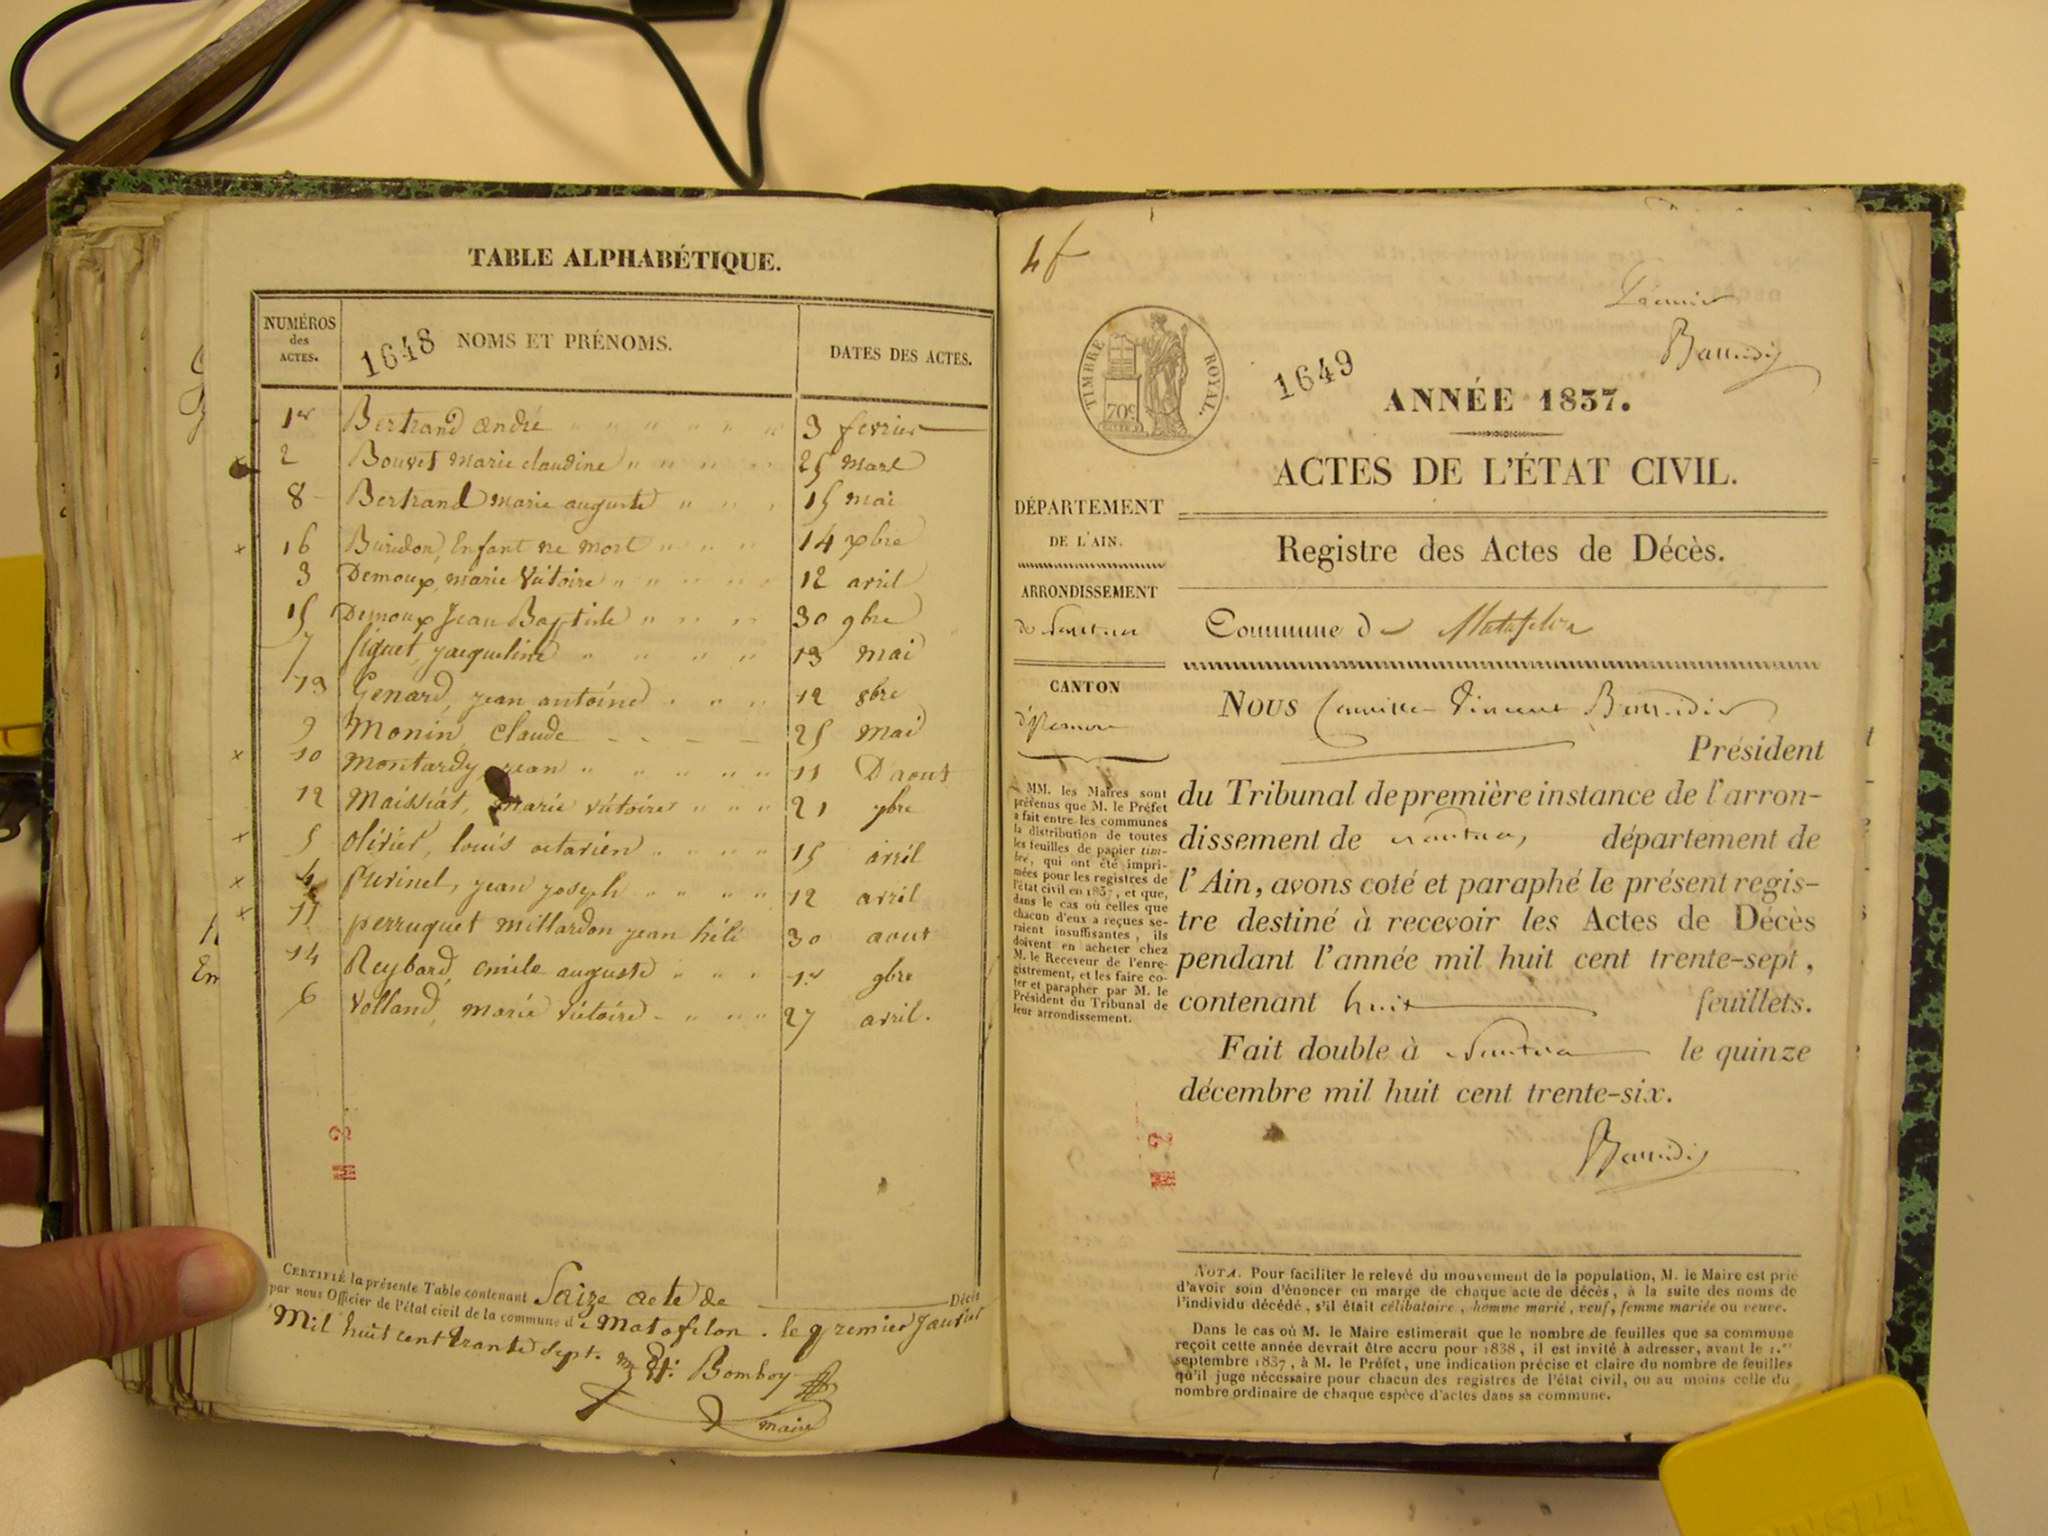 TABLE ALPHABÉTIQUE.
NUMÉROS des ACTES.
1648 NOMS ET PRÉNOMS.
DATES DES ACTES.
1er Bertrand andré " " " " " " 3 fevrier
x 2 Bouvet marie claudine " " " " 25 mars
8 Bertrand marie auguste " " " 15 mai
x 16 Buridon, Enfant ne mort " " " 14 xbre
3 Demoux, marie Victoire " " " " " 12 avril
15 Demoux Jean Baptiste " " " " 30 9bre
7 figuet, jacqueline " " " " 13 mai
13 Genard, jean antoine " " " 12 8bre
9 Monin, claude - - - - 25 mai
x 10 montardy jean " " " " " " 11 D'aout
12 Maissiat, marie victoire " " " 21 7bre
x 5 Olivier, louis octavien " " " " 15 avril
x 4 Perinet, jean joseph " " " " 12 avril
x 11 perruquet millardon jean héli 30 aout
14 Reybard, emile auguste " " " 1er 9bre
6 Volland, marie victoire - " " " 27 avril.
H 2
CERTIFIÉ la présente Table contenant Saize acte de Décès
par nous Officier de l'état civil de la commune de Matafelon. le premier Janvier
Mil huit cent trante sept.
Bomboy
maire
4f
Baudin
TIMBRE ROYAL.
70c
1649
ANNÉE 1837.
ACTES DE L'ÉTAT CIVIL.
DÉPARTEMENT
DE L'AIN.
ARRONDISSEMENT
de Nantua
CANTON
MM. les Maires sont
prévenus que M. le Préfet
a fait entre les communes
la distribution de toutes
les feuilles de papier tim-
bré, qui ont été impri-
mées pour les registres de
l'état civil en 1837, et que,
dans le cas où celles que
chacun d'eux a reçues se-
raient insuffisantes, ils
doivent en acheter chez
M. le Receveur de l'enre-
gistrement, et les faire co-
ter et parapher par M. le
Président du Tribunal de
leur arrondissement.
Registre des Actes de Décès.
Commune de Matafelon
NOUS Camille Vincent
Président
du Tribunal de première instance de l'arron-
dissement de Nantua, département de
l'Ain, avons coté et paraphé le présent regis-
tre destiné à recevoir les Actes de Décès
pendant l'année mil huit cent trente-sept,
contenant huit feuillets.
Fait double à Nantua le quinze
décembre mil huit cent trente-six.
H 2
NOTA. Pour faciliter le relevé du mouvement de la population, M. le Maire est prié
d'avoir soin d'énoncer en marge de chaque acte de décès, à la suite des noms de
l'individu décédé, s'il était célibataire, homme marié, veuf, femme mariée ou veuve.
Dans le cas où M. le Maire estimerait que le nombre de feuilles que sa commune
reçoit cette année devrait être accru pour 1838, il est invité à adresser, avant le 1.er
septembre 1837, à M. le Préfet, une indication précise et claire du nombre de feuilles
qu'il juge nécessaire pour chacun des registres de l'état civil, ou au moins celle du
nombre ordinaire de chaque espèce d'actes dans sa commune.